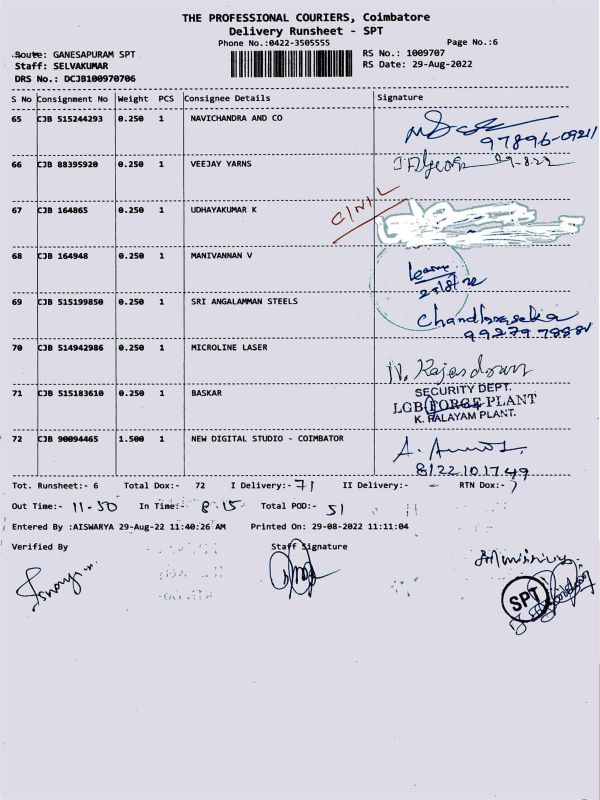 THE PROFESSIONAL COURIERS, Coimbatore
Delivery Runsheet - SPT
Phone No.:0422-3505555 Page No.:6
Route: GANESAPURAM SPT RS No.: 1009707
Staff: SELVAKUMAR RS Date: 29-Aug-2022
DRS No.: DCJB100970706
S No Consignment No Weight PCS Consignee Details Signature
65 CJB 515244293 0.250 1 NAVICHANDRA AND CO
97896-09211
66 CJB 88395920 0.250 1 VEEJAY YARNS 29-8-22
67 CJB 164865 0.250 1 UDHAYAKUMAR K
68 CJB 164948 0.250 1 MANIVANNAN V
69 CJB 515199850 0.250 1 SRI ANGALAMMAN STEELS
Chandrasekar
70 CJB 514942986 0.250 1 MICROLINE LASER
N. Rajendran
71 CJB 515183610 0.250 1 BASKAR
SECURITY DEPT.
LGB FORGE PLANT
K. PALAYAM PLANT.
72 CJB 90094465 1.500 1 NEW DIGITAL STUDIO - COIMBATOR
8122101749
Tot. Runsheet:- 6 Total Dox:- 72 I Delivery:- 71 II Delivery:- - RTN Dox:-
Out Time:- 11-50 In Time:- 8-15 Total POD:- 51
Entered By :AISWARYA 29-Aug-22 11:40:26 AM Printed On: 29-08-2022 11:11:04
Verified By Staff Signature
SPT